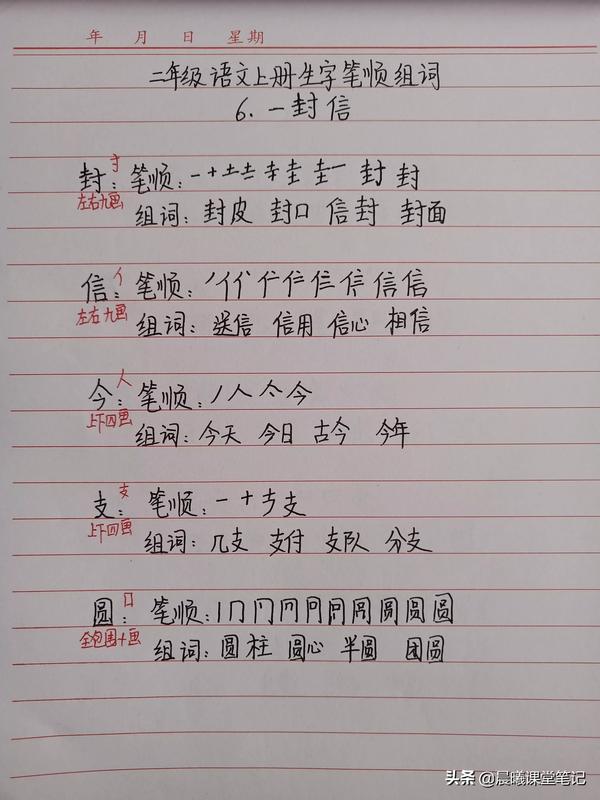 年 月 日 星期
二年级语文上册生字笔顺组词
6.一封信
封:寸 笔顺:一十土圭封封
左右九画 组词:封皮 封口 信封 封面
信:亻 笔顺:丿亻信
左右九画 组词:送信 信用 信心 相信
今:人 笔顺:丿人亽今
上下四画 组词:今天 今日 古今 今年
支:支 笔顺:一十支
上下四画 组词:几支 支付 支队 分支
圆:口 笔顺:丨冂圆
全包围十画 组词:圆柱 圆心 半圆 团圆
头条 @晨曦课堂笔记